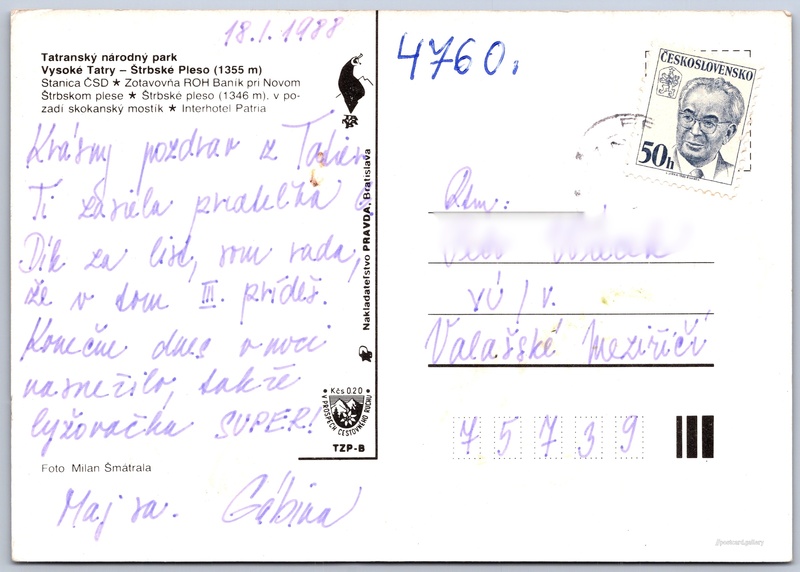 18.1.1988
Tatranský národný park
Vysoké Tatry – Štrbské Pleso (1355 m)
Stanica ČSD ★ Zotavovňa ROH Baník pri Novom
Štrbskom plese ★ Štrbské pleso (1346 m). v po-
zadí skokanský mostík ★ Interhotel Patria
Krásny pozdrav z Tatier
Ti zasiela priateľka G.
Dík za list, som rada,
že v tom III. prídeš.
Konečne dnes v noci
nasnežilo, takže
lyžovačka SUPER!
Foto Milan Šmátrala
Maj sa. Gábina
Nakladateľstvo PRAVDA, Bratislava
Kčs 0.20
V PROSPECH CESTOVNÉHO RUCHU
TZP-B
4760.
ČESKOSLOVENSKO
50h
VÚ / v.
Valašské Meziříčí
75739
//postcard.gallery